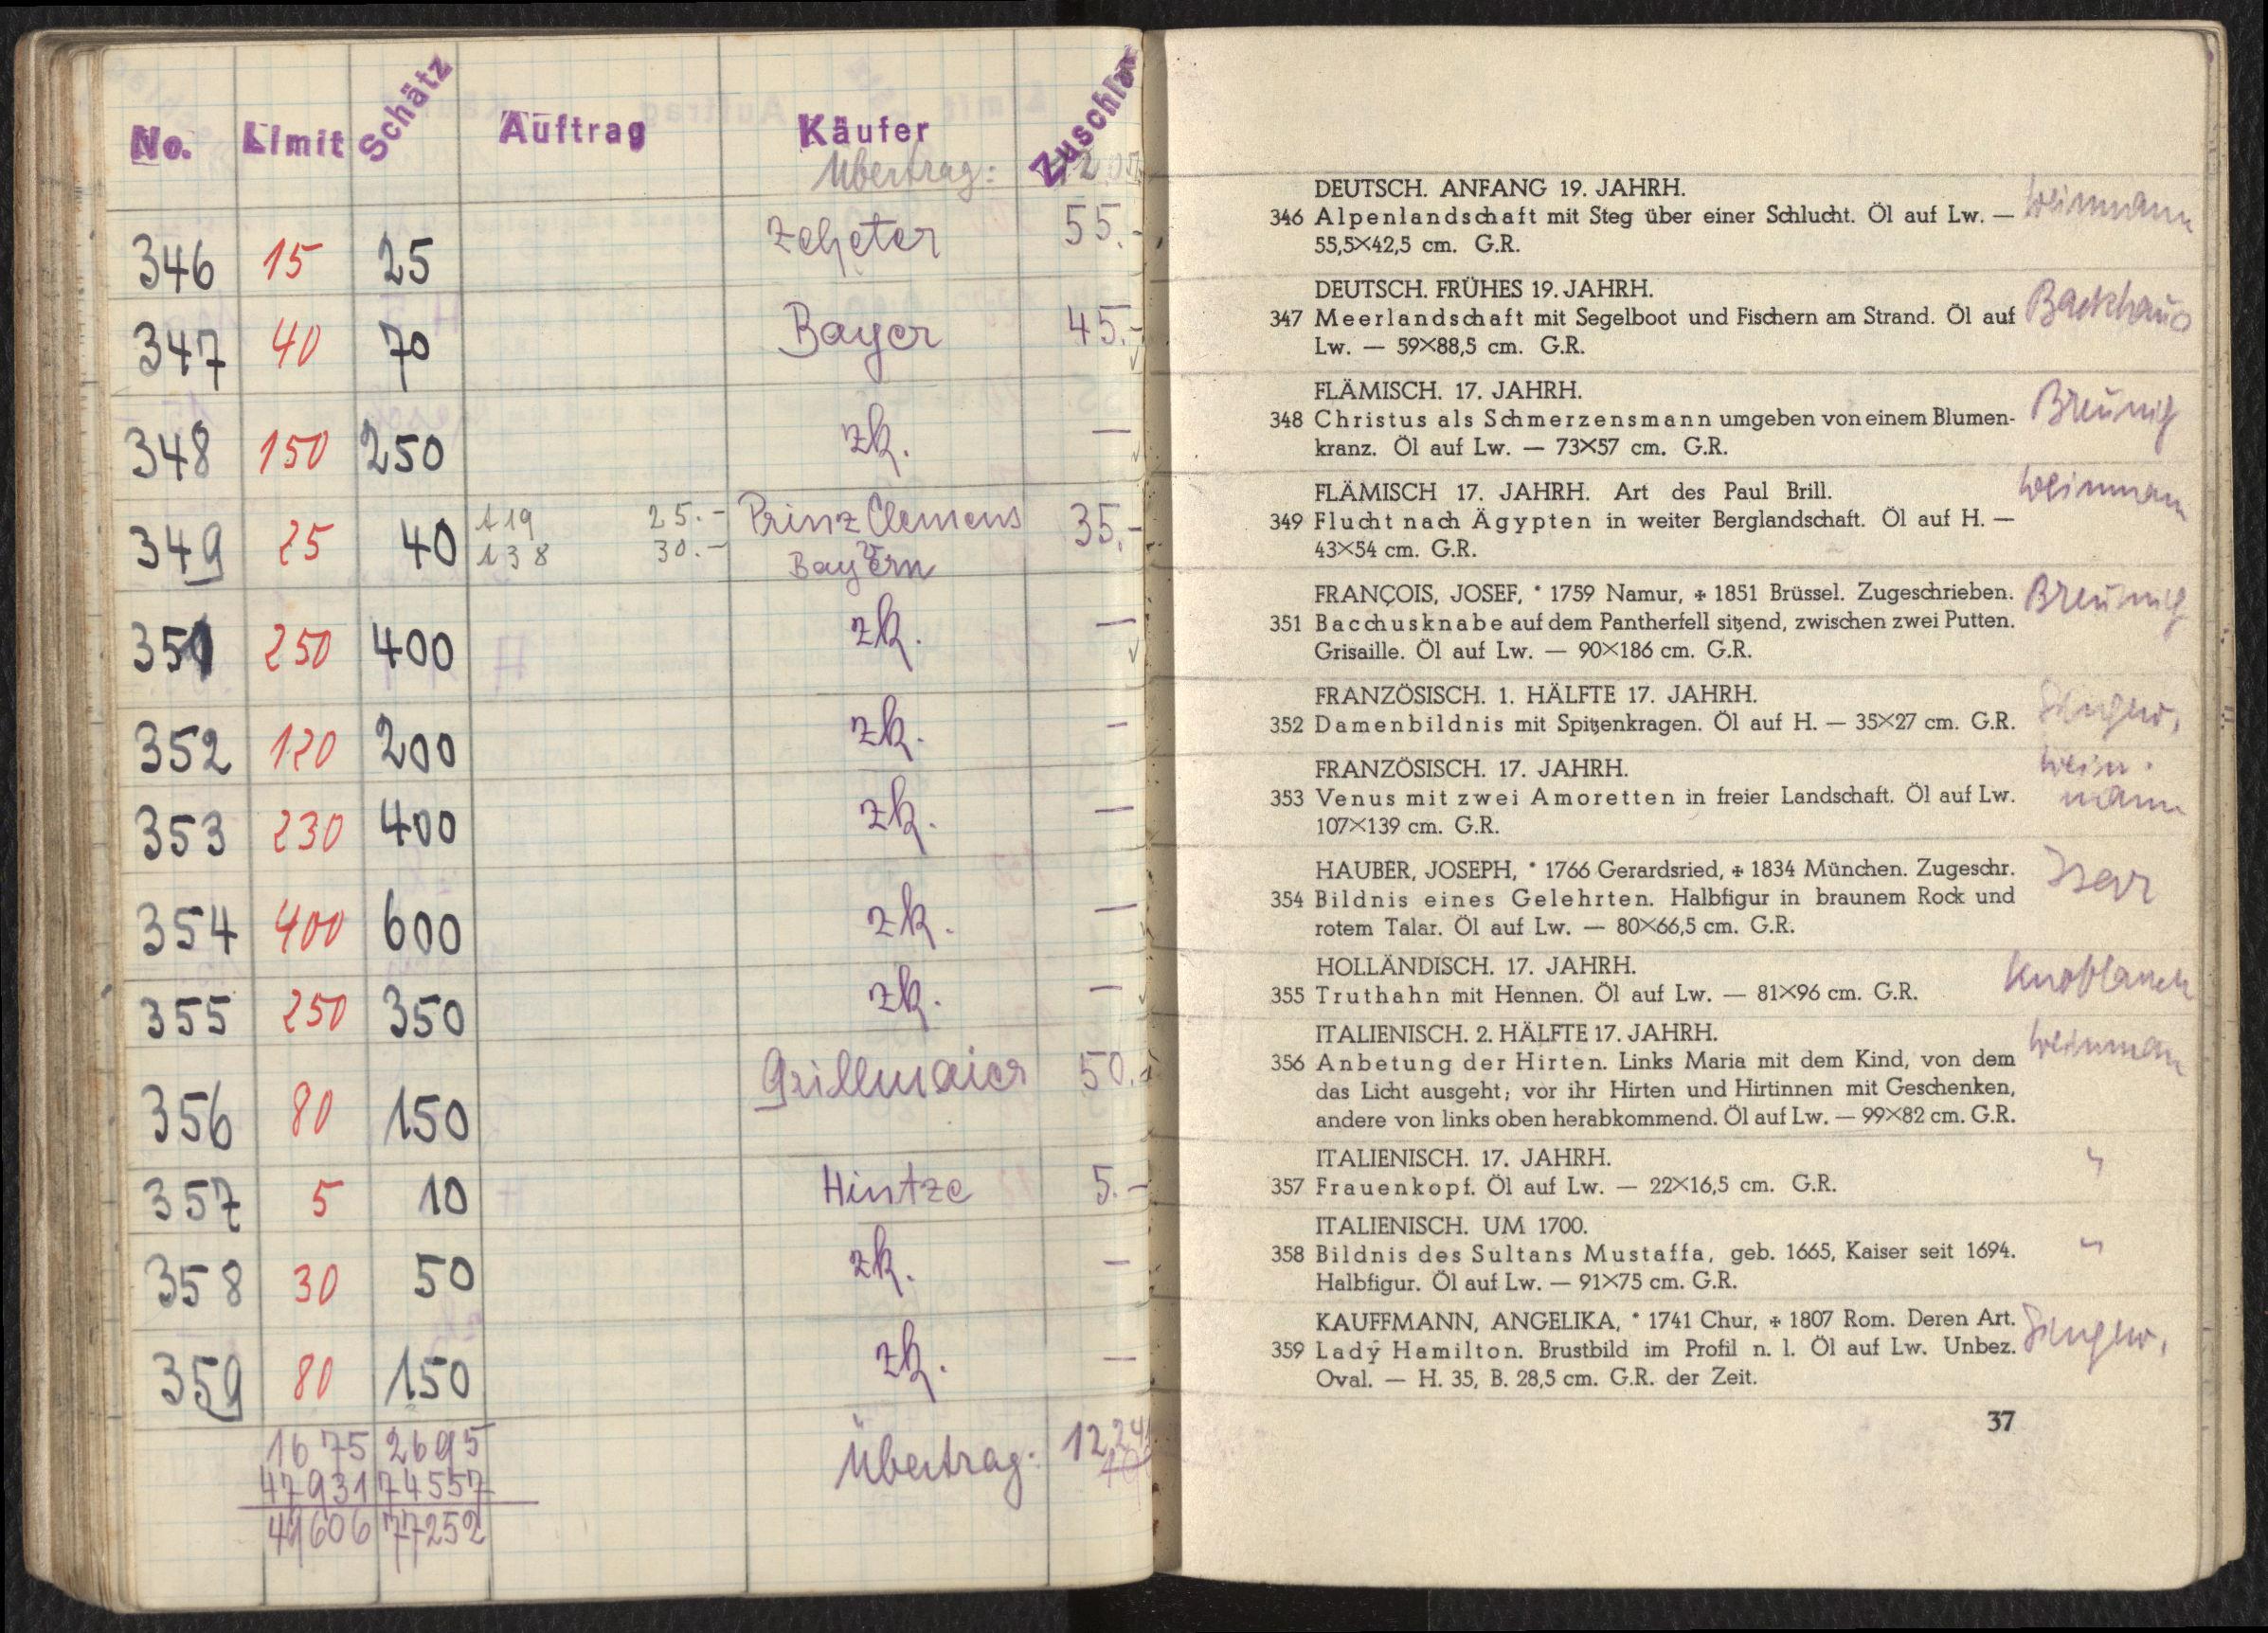 No. Limit Schätz Auftrag Käufer Zuschlag
Übertrag:
346 15 25 Zeheter 55.-
347 40 70 Bayer 45.-
348 150 250 zk. —
349 25 40 A 19 25.- Prinz Clemens 35.-
138 30.- Bayern
351 250 400 zk. —
352 120 200 zk. —
353 230 400 zk. —
354 400 600 zk. —
355 250 350 zk. —
356 80 150 Grillmaier 50.-
357 5 10 Hintze 5.-
358 30 50 zk. —
359 80 150 zk. —
1675 2695 Übertrag:
47931 74557
49606 77252
DEUTSCH. ANFANG 19. JAHRH. Weinmann
346 Alpenlandschaft mit Steg über einer Schlucht. Öl auf Lw. —
55,5×42,5 cm. G.R.
DEUTSCH. FRÜHES 19. JAHRH. Backhaus
347 Meerlandschaft mit Segelboot und Fischern am Strand. Öl auf
Lw. — 59×88,5 cm. G.R.
FLÄMISCH. 17. JAHRH. Breunig
348 Christus als Schmerzensmann umgeben von einem Blumen-
kranz. Öl auf Lw. — 73×57 cm. G.R.
FLÄMISCH 17. JAHRH. Art des Paul Brill. Weinmann
349 Flucht nach Ägypten in weiter Berglandschaft. Öl auf H. —
43×54 cm. G.R.
FRANÇOIS, JOSEF, * 1759 Namur, ✠ 1851 Brüssel. Zugeschrieben. Breunig
351 Bacchusknabe auf dem Pantherfell sitzend, zwischen zwei Putten.
Grisaille. Öl auf Lw. — 90×186 cm. G.R.
FRANZÖSISCH. 1. HÄLFTE 17. JAHRH.
352 Damenbildnis mit Spitzenkragen. Öl auf H. — 35×27 cm. G.R.
FRANZÖSISCH. 17. JAHRH. Wein-
353 Venus mit zwei Amoretten in freier Landschaft. Öl auf Lw. mann
107×139 cm. G.R.
HAUBER, JOSEPH, * 1766 Gerardsried, ✠ 1834 München. Zugeschr. Isar
354 Bildnis eines Gelehrten. Halbfigur in braunem Rock und
rotem Talar. Öl auf Lw. — 80×66,5 cm. G.R.
HOLLÄNDISCH. 17. JAHRH. Knoblauch
355 Truthahn mit Hennen. Öl auf Lw. — 81×96 cm. G.R.
ITALIENISCH. 2. HÄLFTE 17. JAHRH. Weinmann
356 Anbetung der Hirten. Links Maria mit dem Kind, von dem
das Licht ausgeht; vor ihr Hirten und Hirtinnen mit Geschenken,
andere von links oben herabkommend. Öl auf Lw. — 99×82 cm. G.R.
ITALIENISCH. 17. JAHRH. "
357 Frauenkopf. Öl auf Lw. — 22×16,5 cm. G.R.
ITALIENISCH. UM 1700.
358 Bildnis des Sultans Mustaffa, geb. 1665, Kaiser seit 1694. "
Halbfigur. Öl auf Lw. — 91×75 cm. G.R.
KAUFFMANN, ANGELIKA, * 1741 Chur, ✠ 1807 Rom. Deren Art.
359 Lady Hamilton. Brustbild im Profil n. l. Öl auf Lw. Unbez.
Oval. — H. 35, B. 28,5 cm. G.R. der Zeit.
37